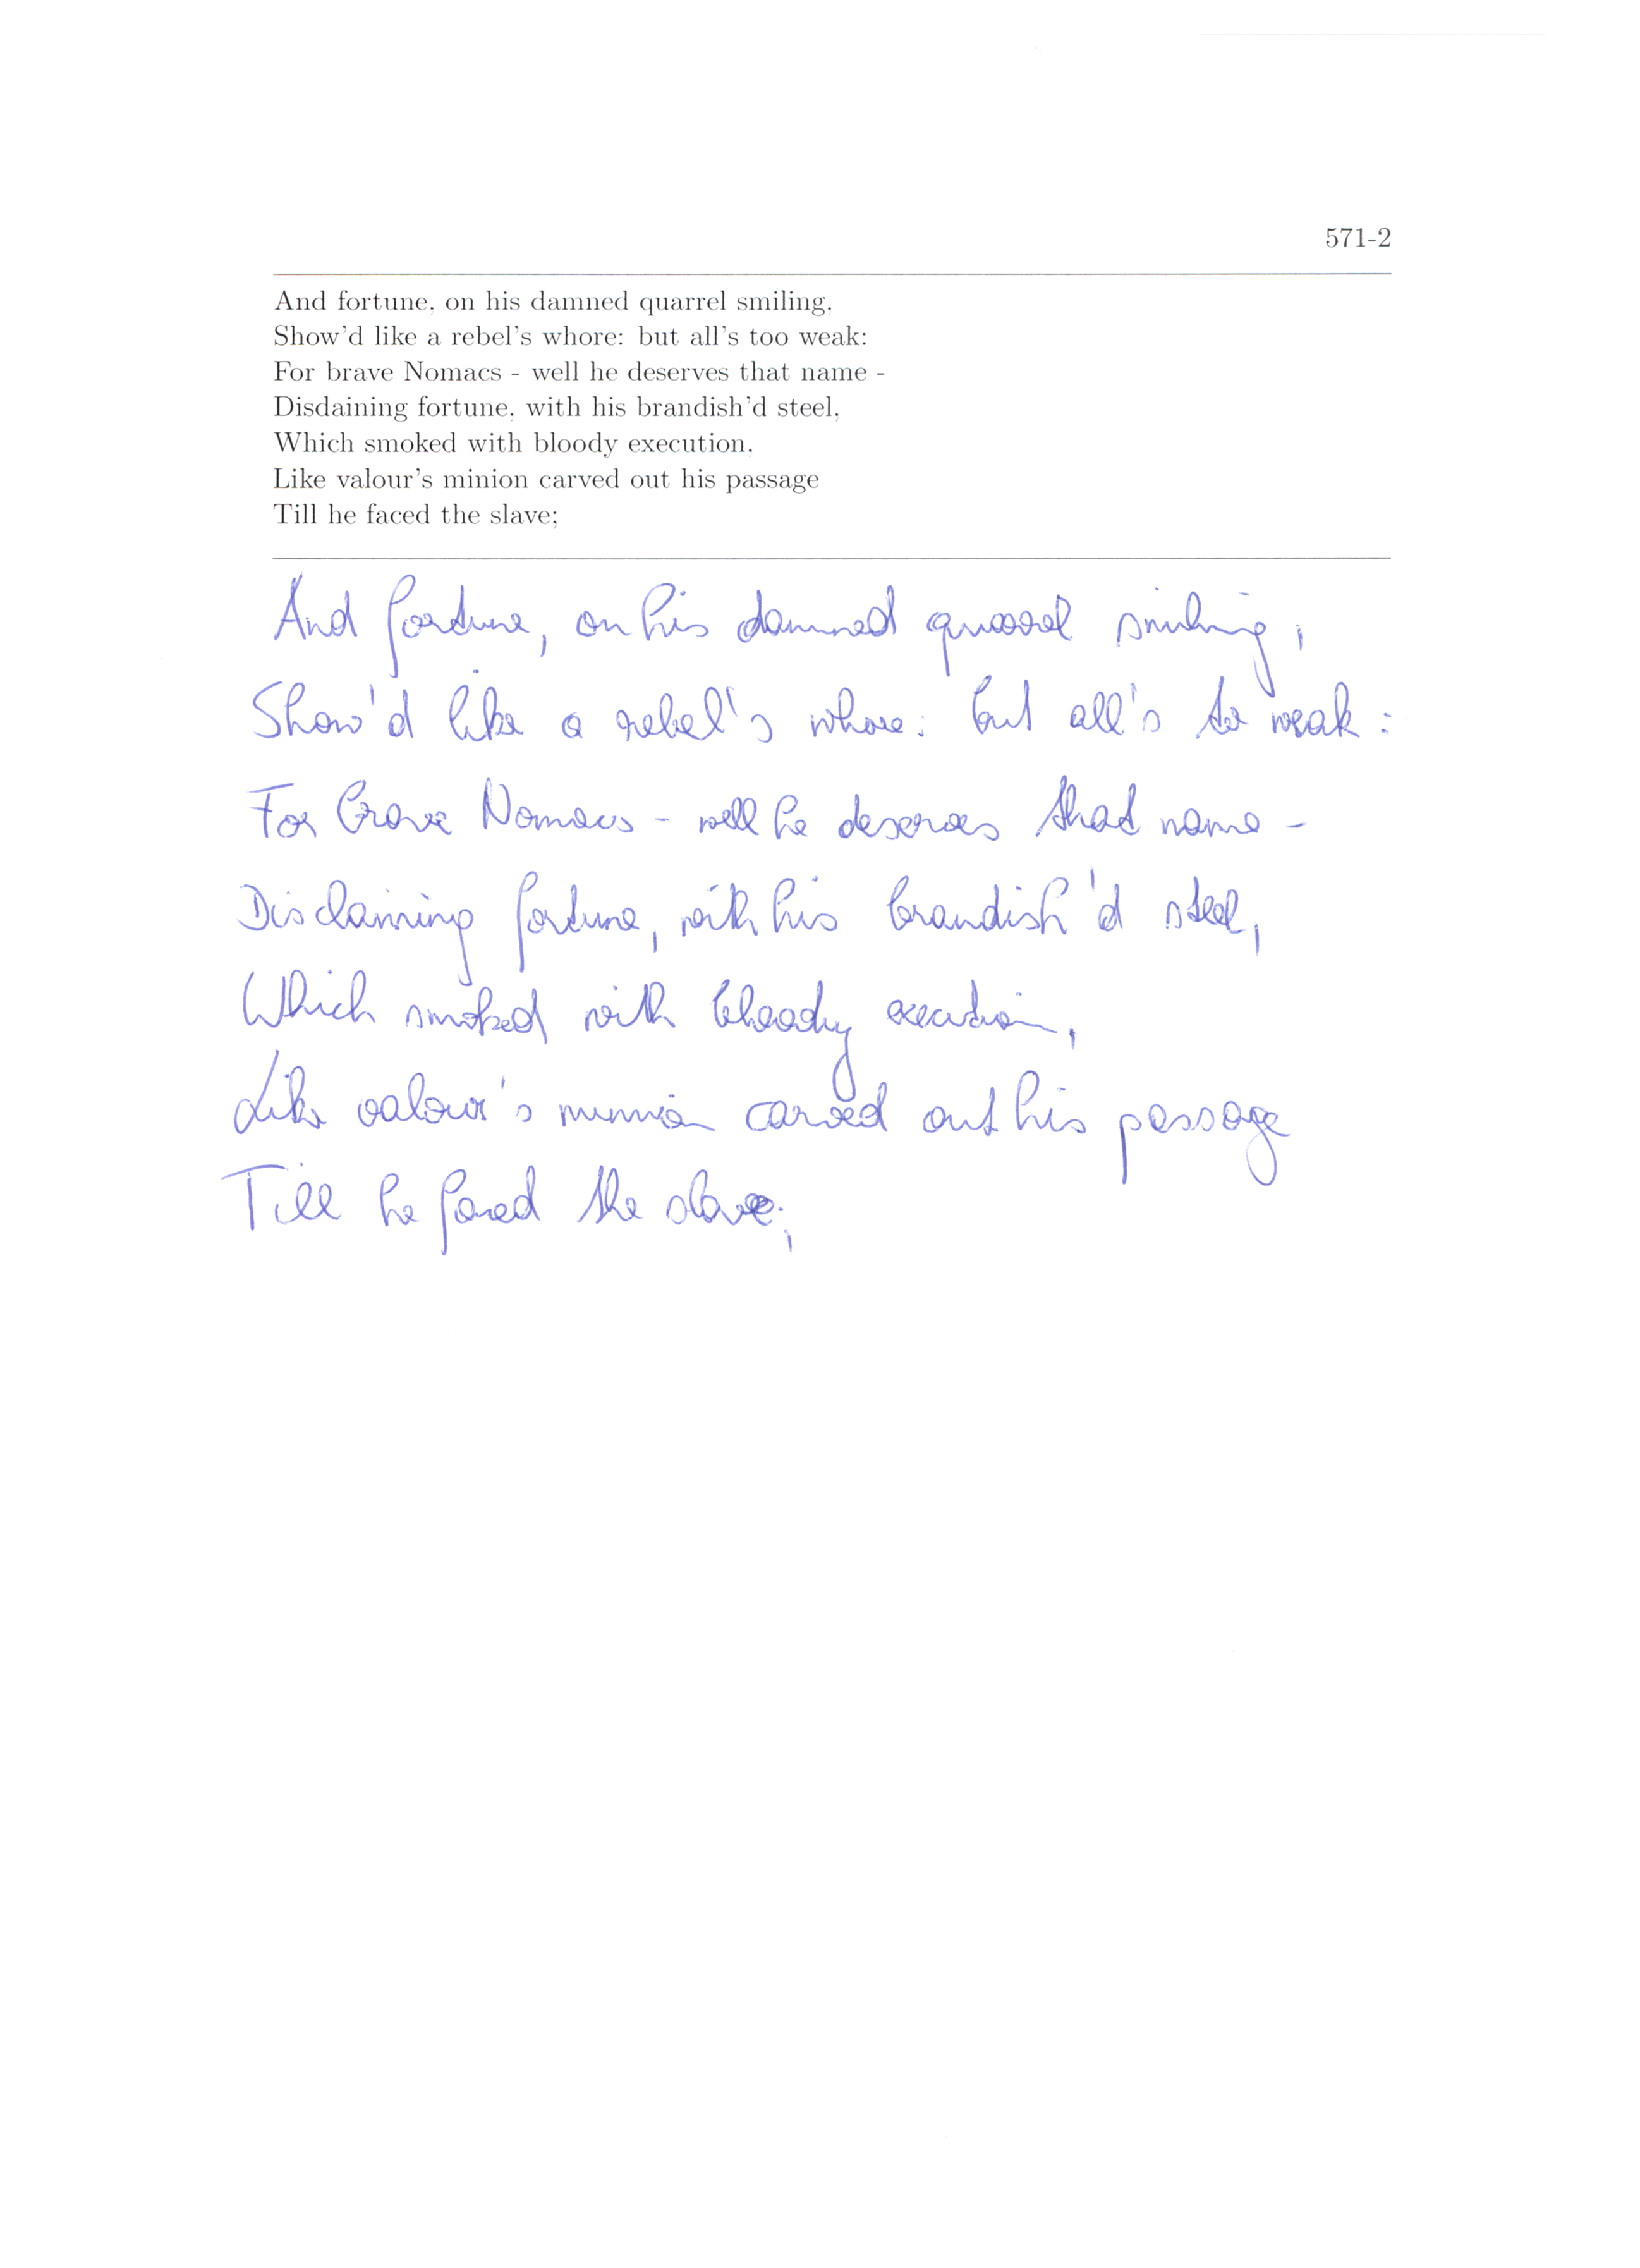 571-2
And fortune, on his damned quarrel smiling,
Show'd like a rebel's whore: but all's too weak:
For brave Nomacs - well he deserves that name -
Disdaining fortune, with his brandish'd steel,
Which smoked with bloody execution,
Like valour's minion carved out his passage
Till he faced the slave;
And fortune, on his damned quarrel smiling,
Show'd like a rebel's whore: but all's too weak:
For brave Nomacs - well he deserves that name -
Disdaining fortune, with his brandish'd steel,
Which smoked with bloody execution,
Like valour's minion carved out his passage
Till he faced the slave;